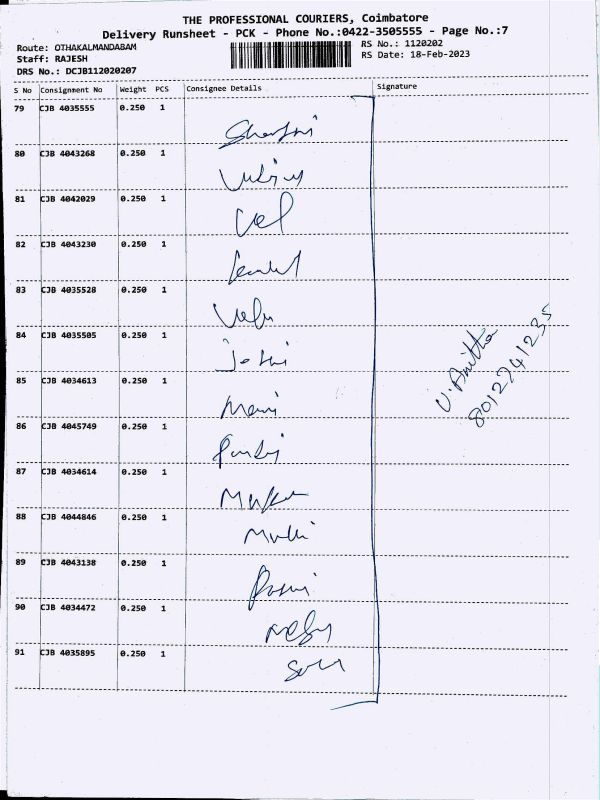 THE PROFESSIONAL COURIERS, Coimbatore
Delivery Runsheet - PCK - Phone No.:0422-3505555 - Page No.:7
Route: OTHAKALMANDABAM
RS No.: 1120202
Staff: RAJESH
RS Date: 18-Feb-2023
DRS No.: DCJB112020207
S No Consignment No Weight PCS Consignee Details Signature
79 CJB 4035555 0.250 1
80 CJB 4043268 0.250 1
81 CJB 4042029 0.250 1
Vel
82 CJB 4043230 0.250 1
83 CJB 4035528 0.250 1
Velu
84 CJB 4035505 0.250 1
85 CJB 4034613 0.250 1
Mani
86 CJB 4045749 0.250 1
87 CJB 4034614 0.250 1
88 CJB 4044846 0.250 1
89 CJB 4043138 0.250 1
90 CJB 4034472 0.250 1
91 CJB 4035895 0.250 1
V. Anitha
8012741235